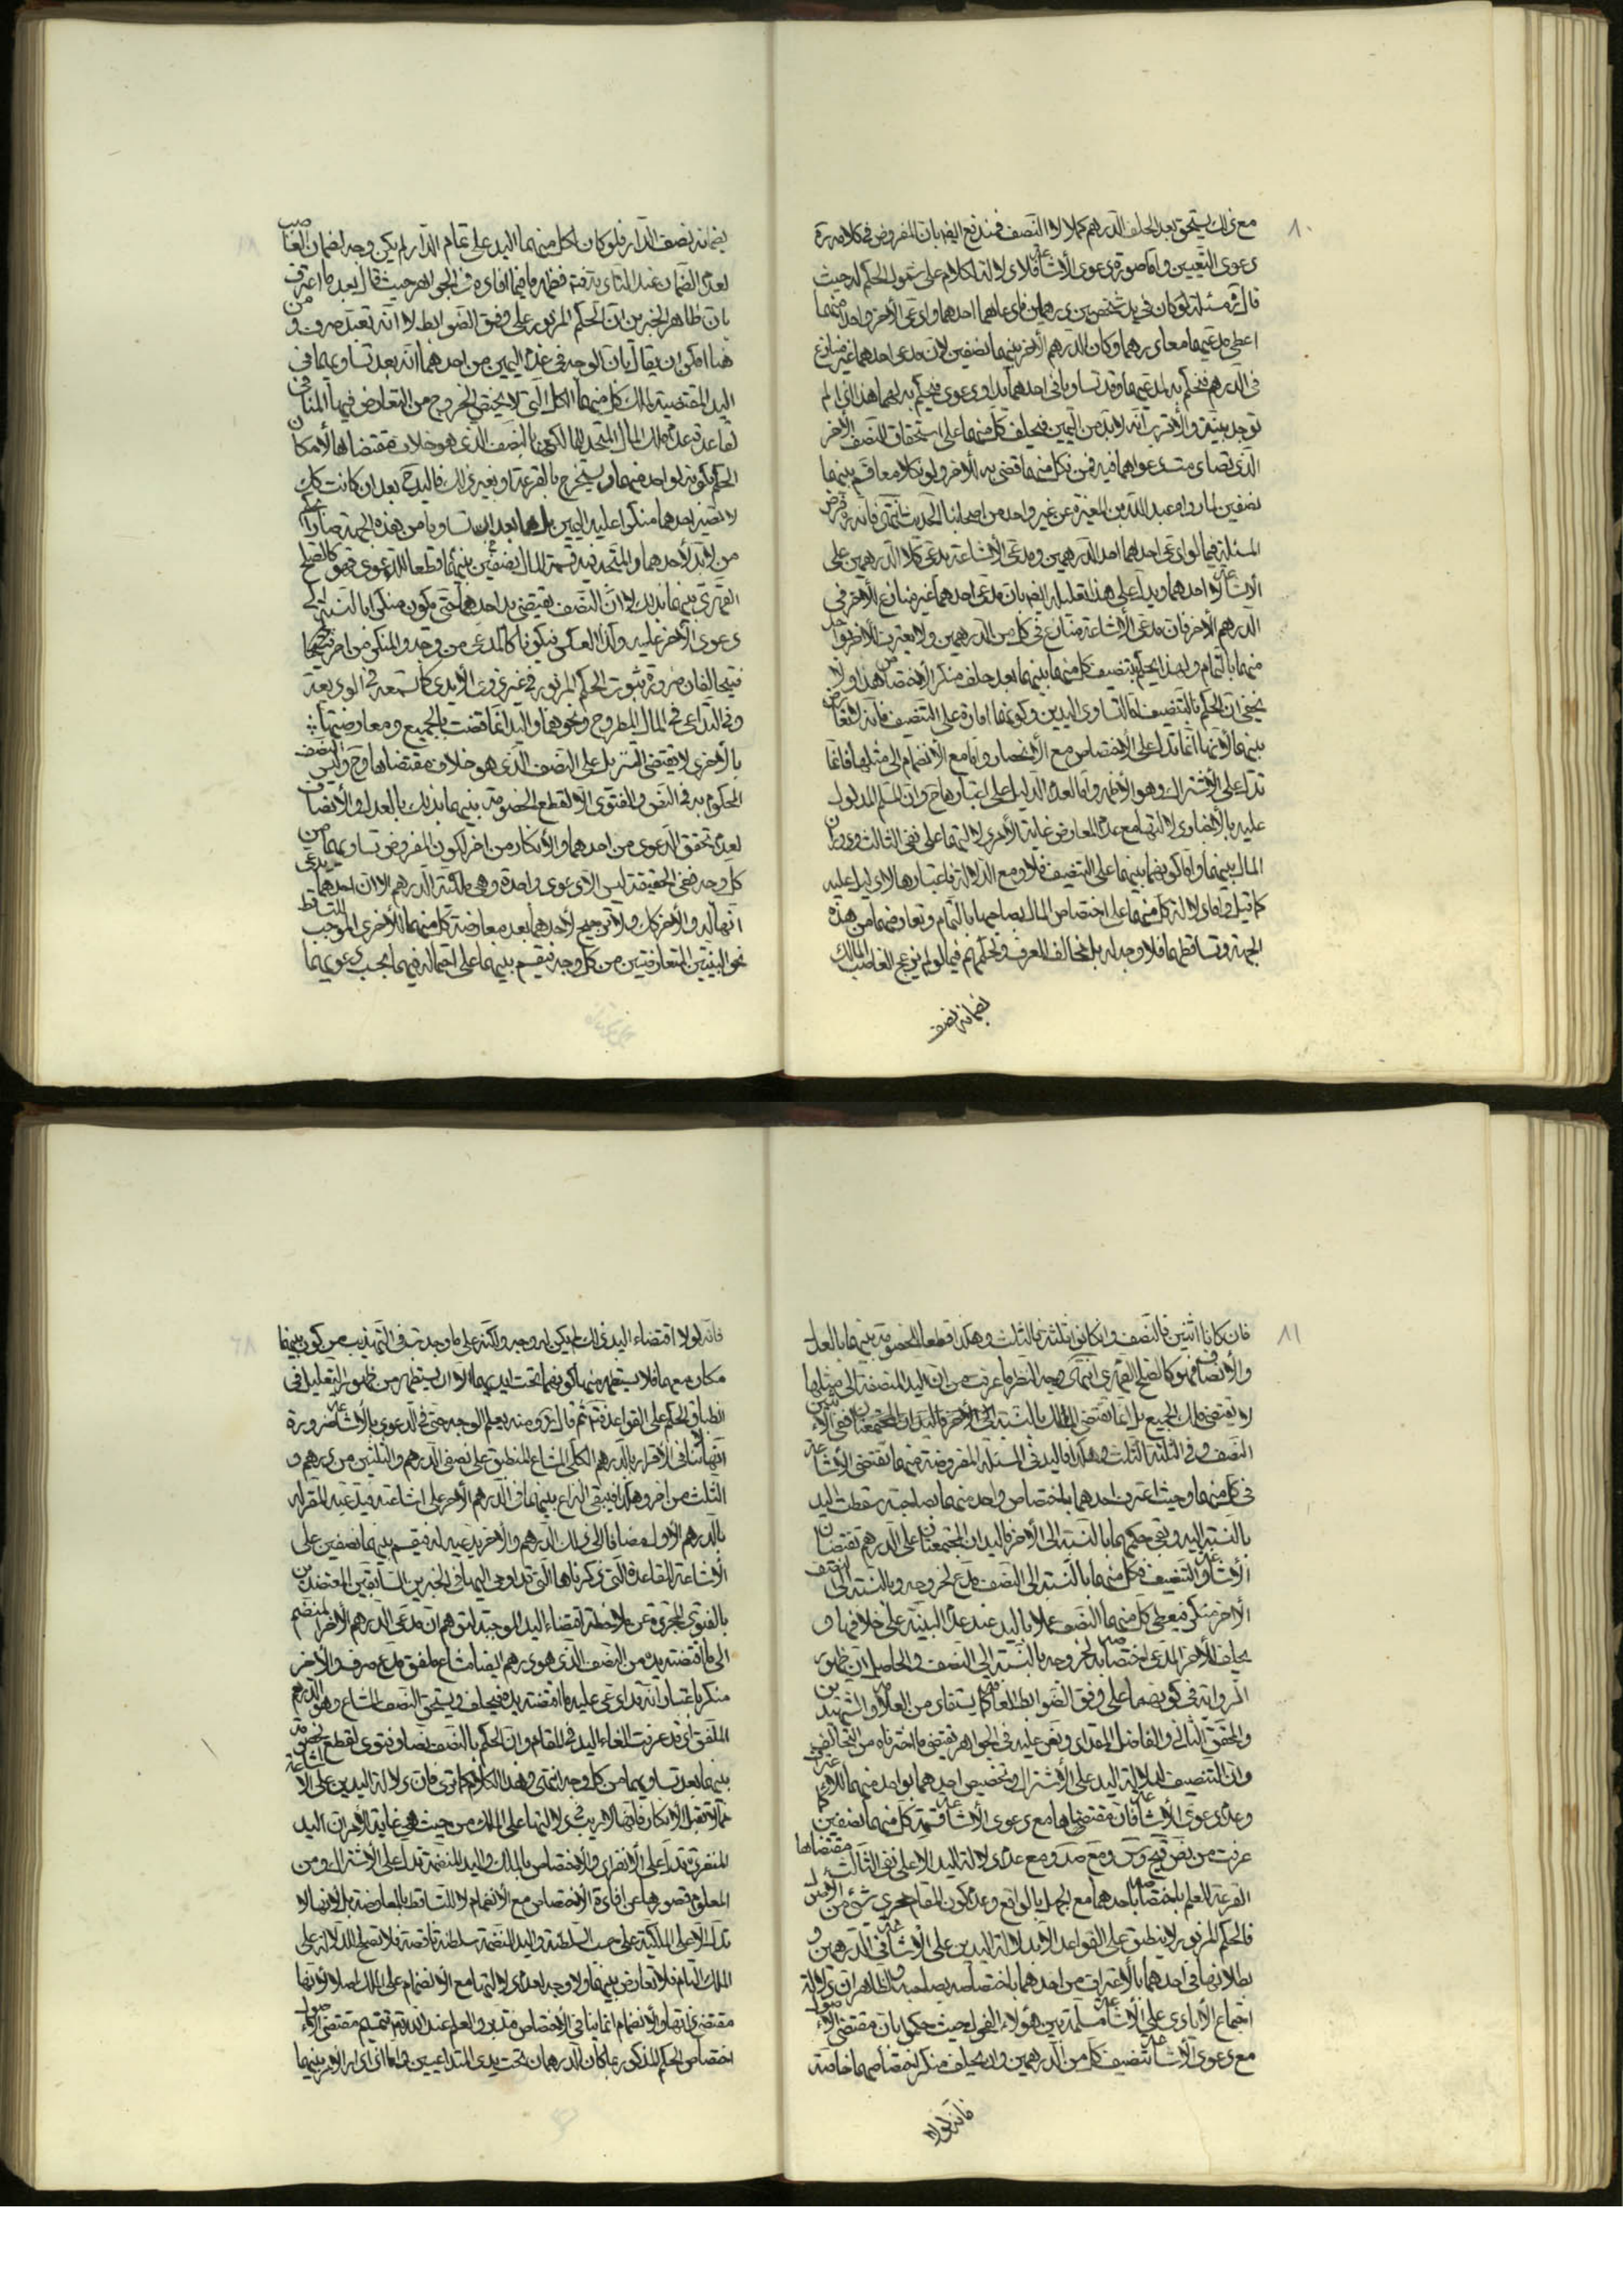 ٨٠
مع ذلك يستحق بعد الحلف الدرهم كملا لا النصف فيندفع ايضا بان المفروض في كلامه ره
دعوى التعيين واما صورة دعوى الاشاعة فلا دلالة لكلامه على شمول الحكم له حيث
قال مسئلة لو كان في يد شخصين درهمان فادعاهما احدهما وادعى الاخر واحدا منهما
اعطى مدعيهما معا درهما وكان الدرهم الاخر بينهما نصفين لان مدعى احدهما غير منازع
في الدرهم فنحكم به لمدعيهما وقد تساويا في احدهما يدا ودعوى فيحكم به لهما هذا اذا لم
توجد بينة والاقرب انه لابد من اليمين فيحلف كل منهما على استحقاق النصف الاخر
الذي تصادمت دعواهما فيه فمن نكل منهما قضى به للاخر ولو نكلا معا قسم بينهما
نصفين لما رواه عبد الله بن المغيرة عن غير واحد من اصحابنا الحديث انتهى فانه ره فرض
المسئلة فيما لو ادعى احدهما احد الدرهمين ومدعى الاشاعة يدعى كلا الدرهمين على
الاشاعة لا احدهما ويدل على هذا تعليله ايضا بان مدعى احدهما غير منازع الاخر في
الدرهم الاخر فان مدعى الاشاعة منازع في كل من الدرهمين ولا يعترف للاخر بواحد
منهما بالتمام ولهذا يحكم بتنصيف كل منهما بينهما بعد حلف منكر الاختصاص هذا ولا
يخفى ان الحكم بالتنصيف لما لتساوى اليدين وكونهما امارة على التنصيف فانه لا تعارض
بينهما لانها انما تدل على الاختصاص مع الانحصار واما مع الانضمام الى مثلها فانما
تدل على الاشتراك وهو الاظهر واما لعدم الدليل على اعتبارها ح وان المسلم المدلول
عليه بالاخبار دلالتها مع عدم المعارض غاية الامر دلالتهما على نفى الثالث ودوران
المال بينهما واما كونهما بينهما على التنصيف فلا ومع الدلالة فاعتبارها لا دليل عليه
كما قيل واما دلالة كل منهما على اختصاص المال بصاحبها بالتمام وتعارضهما من هذه
الجهة وتساقطهما فلا وجه له بل مخالف للعرف ولحكمهم فيما لو لم يزعج الغاصب المالك
بضمانه نصف
بضمانه نصف الدار فلو كان لكل منهما اليد على تمام الدار لم يكن وجه لضمان الغاصب
لعدم الضمان عند
بان ظاهر الخبرين ان الحكم المزبور على وفق الضوابط لا انه تعبد صرف ومن
هنا امكن ان يقال بان الوجه في عدم اليمين من احدهما انه بعد تساويهما في
اليد المقتضية لملك كل منهما الكل التي لا يخفى الخروج من التعارض فيها المنافي
لقاعدة عدم ملك المال المتحد لمالكين بالنصف الذي هو خلاف مقتضاها لامكان
الحكم بكونه لواحد منهما ويستخرج بالقرعة او بغير ذلك فاليد ح بعد ان كانت كك
لا تصير احدهما منكرا عليه اليمين بل هما بعد
من لا يد لاحدهما والمتجه فيه قسمة المال نصفين بينهما قطعا للدعوى فهو كالصلح
القهري بينهما بذلك لا ان النصف يقتضى يد احدهما حتى يكون منكرا بالنسبة الى
دعوى الاخر عليه وكذا العكس فيكونا كالمدعى من وجه والمنكر من اخر
فيتحالفان ضرورة ثبوت الحكم المزبور في غير ذى الايدى كما تسمعه في الوديعة
وفى التداعى في المال المطروح ونحوهما واليد انما قضت بالجميع ومعارضتها
بالاخرى لا يقتضى التنزيل على النصف الذي هو خلاف مقتضاها وح وليس النصف
المحكوم به في النص والفتوى الا لقطع الخصومة بينهما بذلك بالعدل والانصاف
لعدم تحقق الدعوى من احدهما والانكار من اخر لكون المفروض تساويهما من
كل وجه ففى الحقيقة ليس الا دعوى واحدة وهى ملكية الدرهم الا ان احدهما يدعى
انها له والاخر كك ولا ترجيح لاحدهما بعد معارضة كل منهما للاخرى الموجب للتساقط
نحو البينتين المتعارضتين من كل وجه فيقسم بينهما على احتماله فيهما بحسب دعويهما
٨١
فان كانا اثنين فالنصف وان كانوا ثلثة فالثلث وهكذا قطعا للخصومة بينهما بالعدل
والانصاف فهو كالصلح القهري انتهى وجه النظر ما عرفت من ان اليد المنضمة الى مثلها
لا يقتضى ملك الجميع بل انما تقتضى الملك بالنسبة
النصف وفى الثلثة الثلث وهكذا فاليد في المسئلة المفروضة منهما تقتضى الاشاعة
في كل منهما وحيث اعترف احدهما باختصاص واحد منهما بصاحبه سقطت اليد
بالنسبة اليه وبقى حكمهما بالنسبة الى الاخر فاليدان المجتمعتان على الدرهم تقتضيان
الاشاعة والتنصيف فكل منهما بالنسبة الى النصف مدع لخروجه وبالنسبة الى النصف
الاخر منكر فيعطى كل منهما النصف عملا باليد عند عدم البينة على خلافها و
يحلف للاخر المدعى اختصاصه لخروجه بالنسبة الى النصف والحاصل ان ظهور
الرواية في كونهما على وفق الضوابط العامة كما يستفاد من العلامة والشهيدين
والمحقق الثاني والفاضل المقداد ونص عليه في الجواهر يقتضى ما اخترناه من التحالف
وان التنصيف لدلالة اليد على الاشتراك وتخصيص احدهما بواحد منهما للاعتراف
وعدم دعوى الاشاعة فان مقتضاها مع دعوى الاشاعة قسمة كل منهما نصفين كما
عرفت من
القرعة للعلم باختصاصها باحدهما مع الجهل بالواقع وعدم كون المقام مجرى شئ من الاصول
فالحكم المزبور لا ينطبق على القواعد الا بدلالة اليدين على الاشاعة في الدرهمين و
بطلانها في احدهما بالاعتراف من احدهما باختصاصه بصاحبه والظاهر ان دلالة
اجتماع الايادى على الاشاعة مسلمة بين هؤلاء الفحول حيث حكموا بان مقتضى الاصول
مع دعوى الاشاعة تنصيف كل من الدرهمين وان يحلف منكر اختصاصهما خاصة
فانه لولا
فانه لولا اقتضاء اليد ذلك لم يكن له وجه ولكنه على ما وجدته في التهذيب من كون بينهما
مكان معهما فلا يستظهر منها كونهما تحت ايديهما الا ان يستظهر من ظهور التعليل في
انطباق الحكم على القواعد ثم قال ره ومنه يعلم الوجه حتى في الدعوى بالاشاعة ضرورة
انها لا تنافى الاقرار بالدرهم الكلى المشاع المنطبق على نصفى الدرهم والثلثين من درهم و
الثلث من اخر وهكذا فيبقى النزاع بينهما في الدرهم الاخر على اشاعته فيدعيه المقر له
بالدرهم الاول مضافا الى ذلك الدرهم والاخر يدعيه له فيقسم بينهما نصفين على
الاشاعة للقاعدة التي ذكرناها التي قد اومى اليها في الخبرين السابقين المعتضدين
بالفتوى المجردة عن ملاحظة اقتضاء اليد الموجبة لتوهم ان مدعى الدرهم الاخر المنضم
الى ما اقتضته يده من النصف الذي هو درهم ايضا مشاع ملفق مدع صرف والاخر
منكر باعتبار انه قد ادعى عليه ما اقتضته يده فيحلف ويستحق النصف المشاع وهو الدرهم
الملفق اذ قد عرفت الغاء اليد في المقام وان الحكم بالنصف نصا وفتوى لقطع خصومة
بينهما بعد تساويهما من كل وجه انتهى وهذا الكلام كما ترى فان دلالة اليدين على الاشاعة
مما لا تقبل الانكار فانها لا ريب في دلالتها على الملك من حيث هي غاية الامر ان اليد
المنفردة تدل على الانفراد والاختصاص بالملك واليد المنضمة تدل على الاشتراك ومن
المعلوم قصورها عن افادة الاختصاص مع الانضمام لا للتساقط بالمعارضة بل لانها لا
تدل الا على الملكية على حسب السلطنة واليد المنضمة سلطنة ناقصة فلا تصلح للدلالة على
الملك التام فلا تعارض بينهما ولا وجه لعدم دلالتها مع الانضمام على الملك اصلا لانها
مقتضى ذاتها والانضمام انما ينافى الاختصاص فتدبر والعلم عند الله ثم تتميم مقتضى الاصول
اختصاص الحكم المذكور بما كان الدرهمان تحت يدى المتداعيين واما اذا دار الامر بينهما